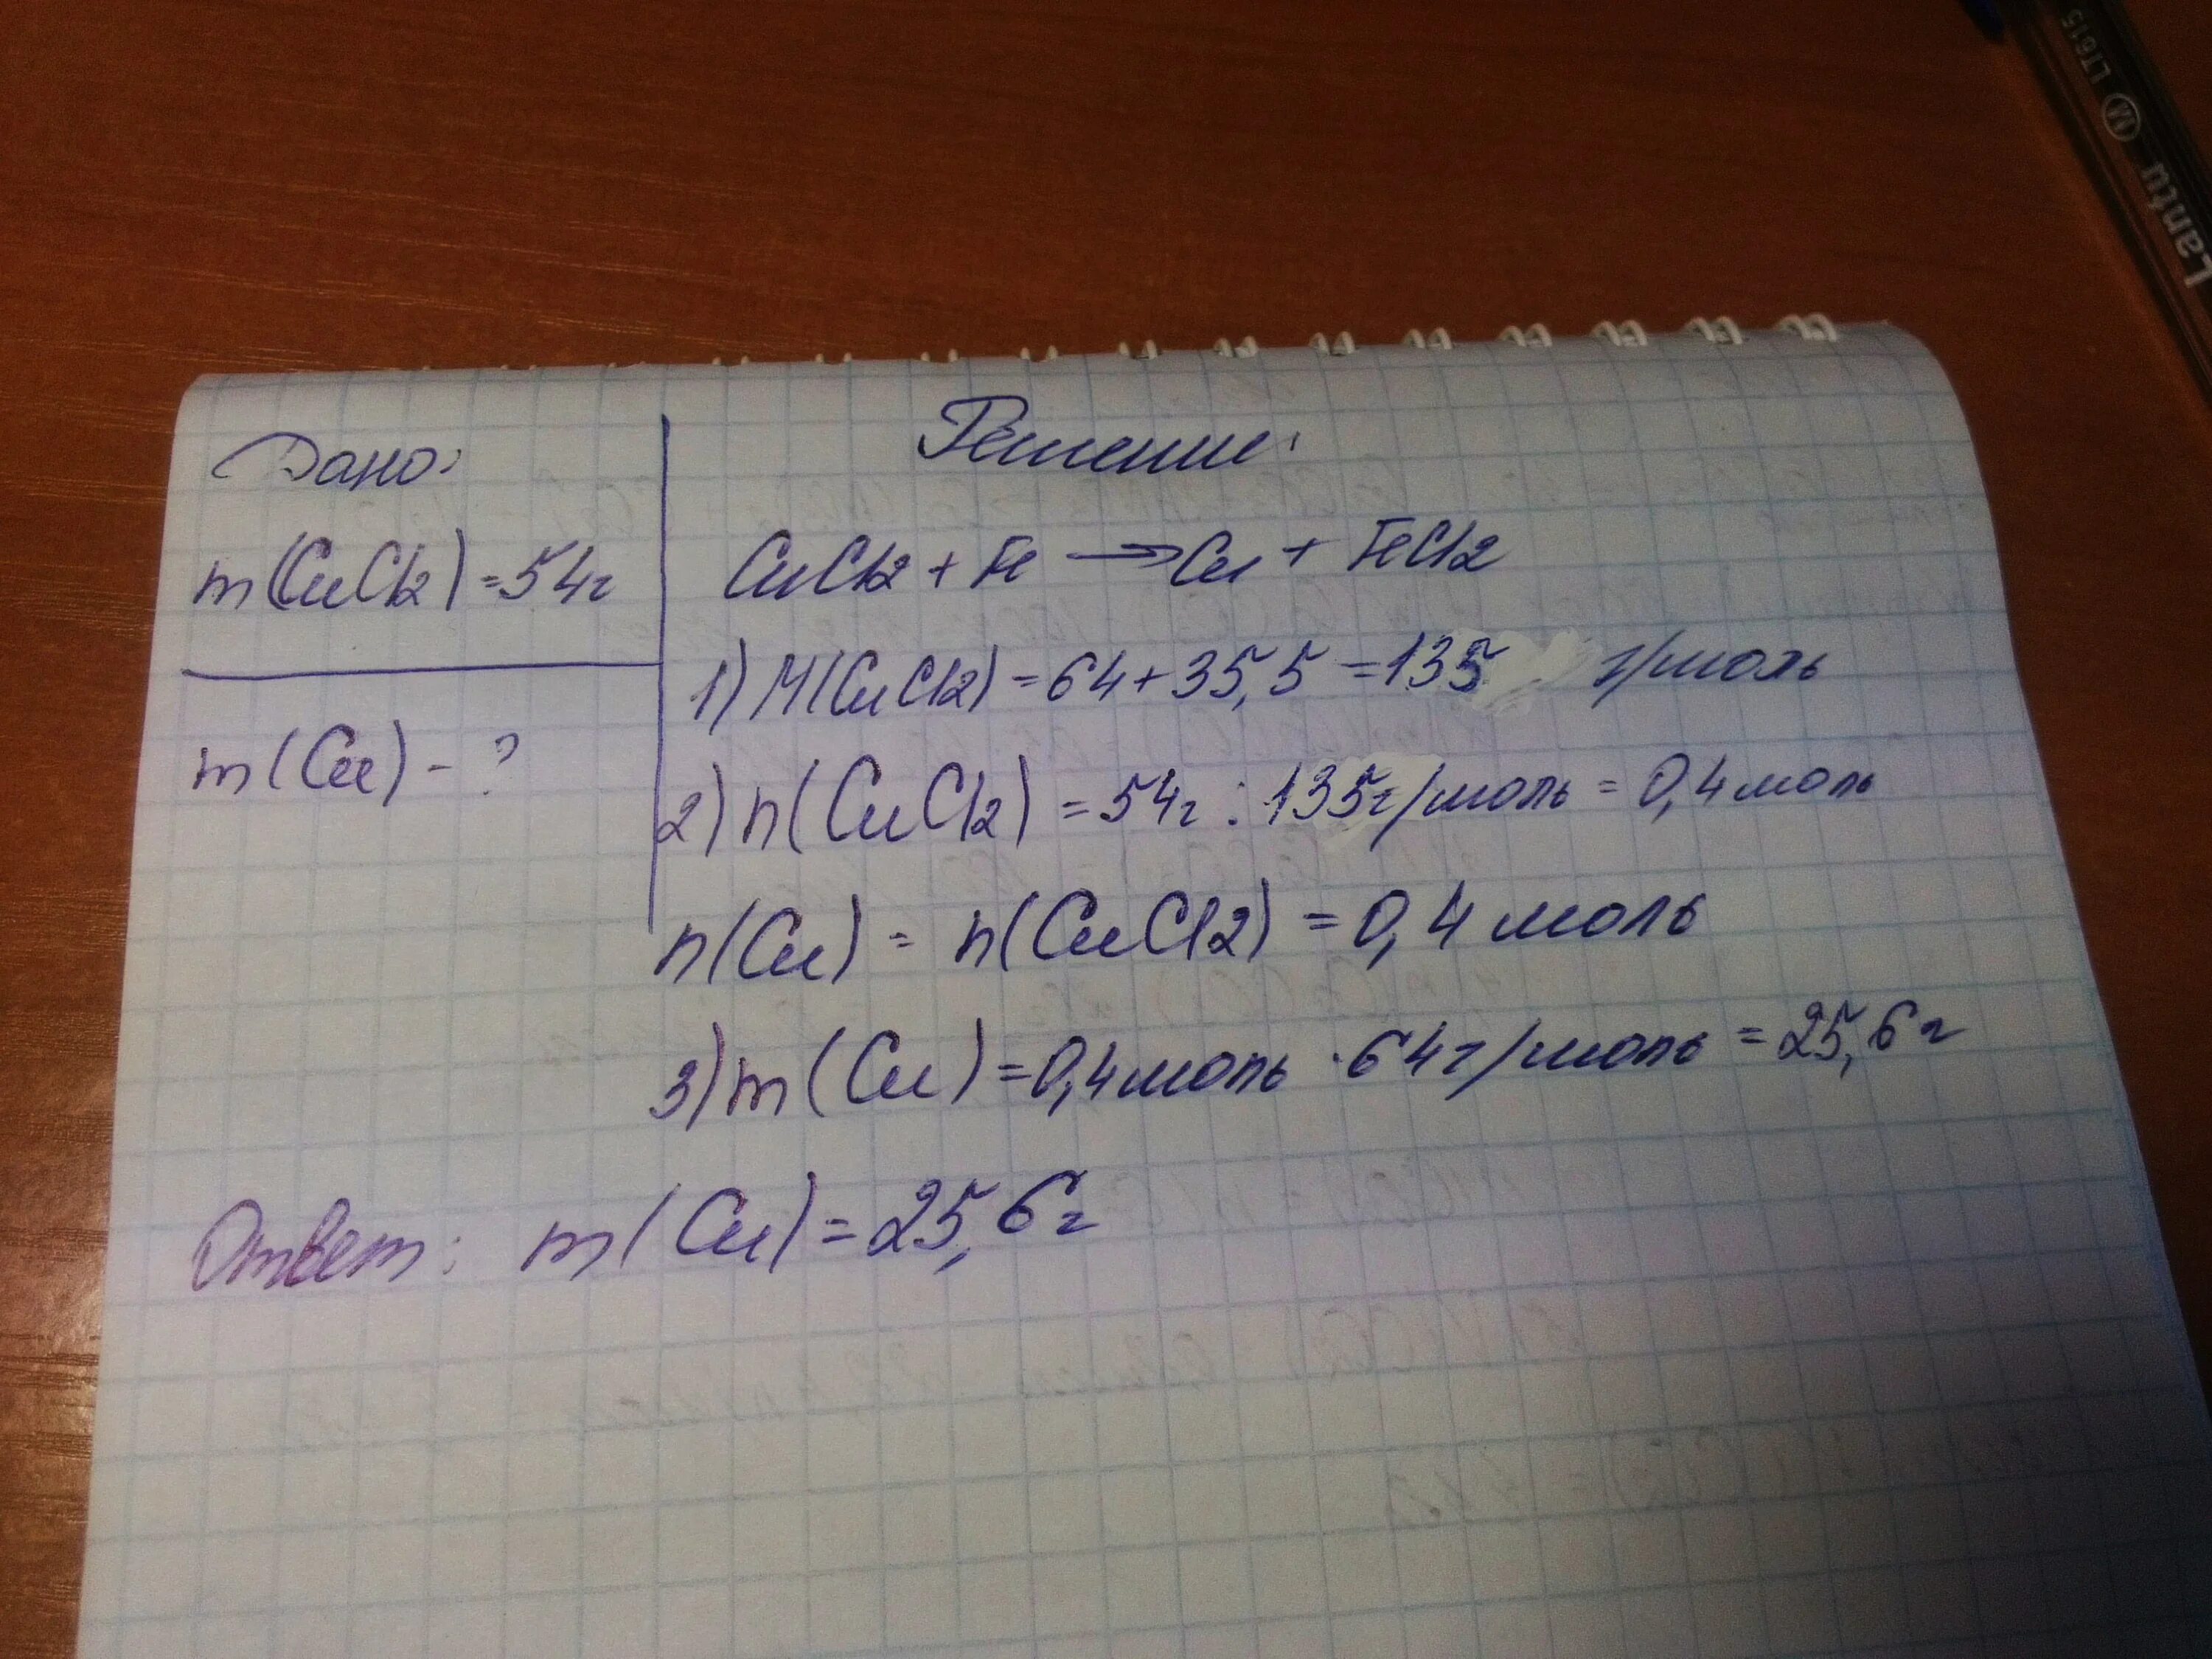 Lantu Ⓜ LT615
Дано:
m(CuCl2) = 54г
m(Cu) - ?
Решение:
CuCl2 + Fe → Cu + FeCl2
1) M(CuCl2) = 64 + 35,5 = 135 г/моль
2) n(CuCl2) = 54г : 135г/моль = 0,4 моль
n(Cu) = n(CuCl2) = 0,4 моль
3) m(Cu) = 0,4 моль · 64г/моль = 25,6 г
Ответ: m(Cu) = 25,6г